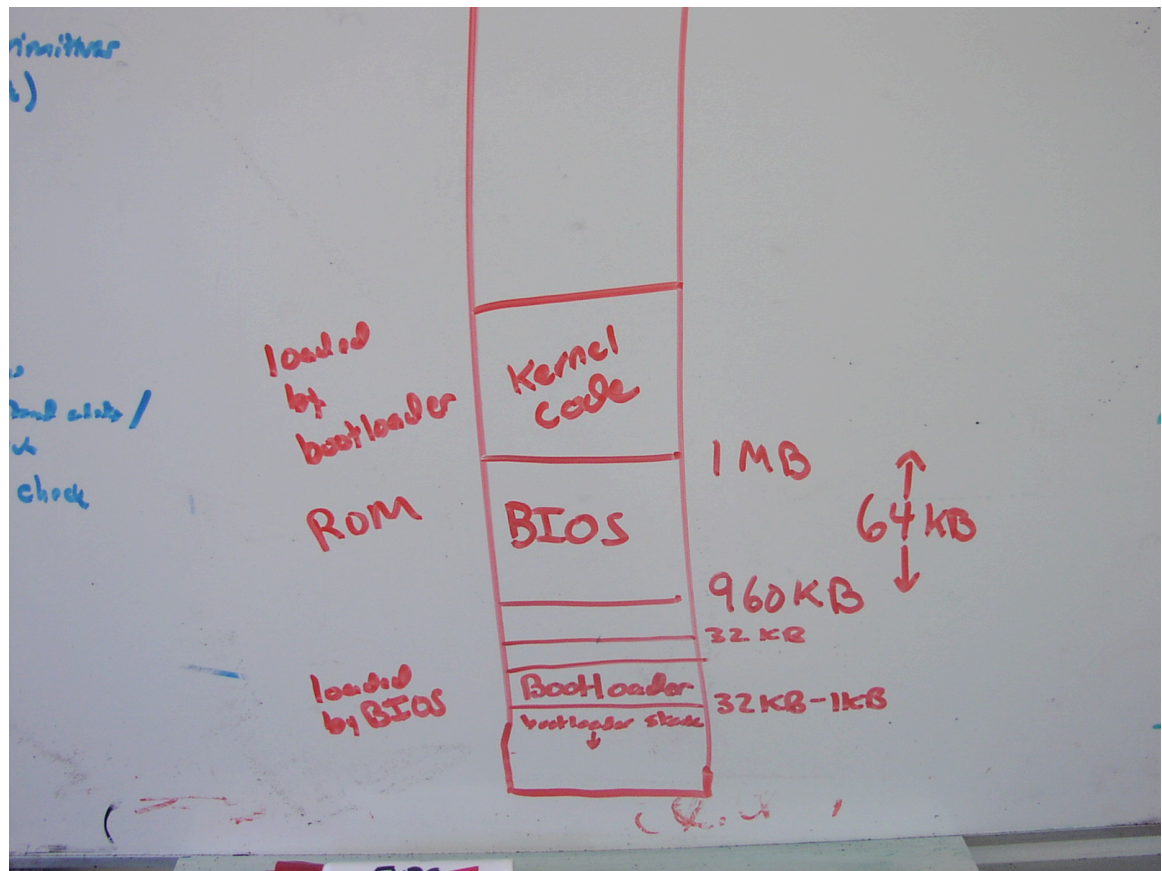 loaded
by
bootloader
Kernel
code
1 MB
ROM
BIOS
64 KB
960KB
32 KB
loaded
by BIOS
Bootloader
32KB-1KB
bootloader
check